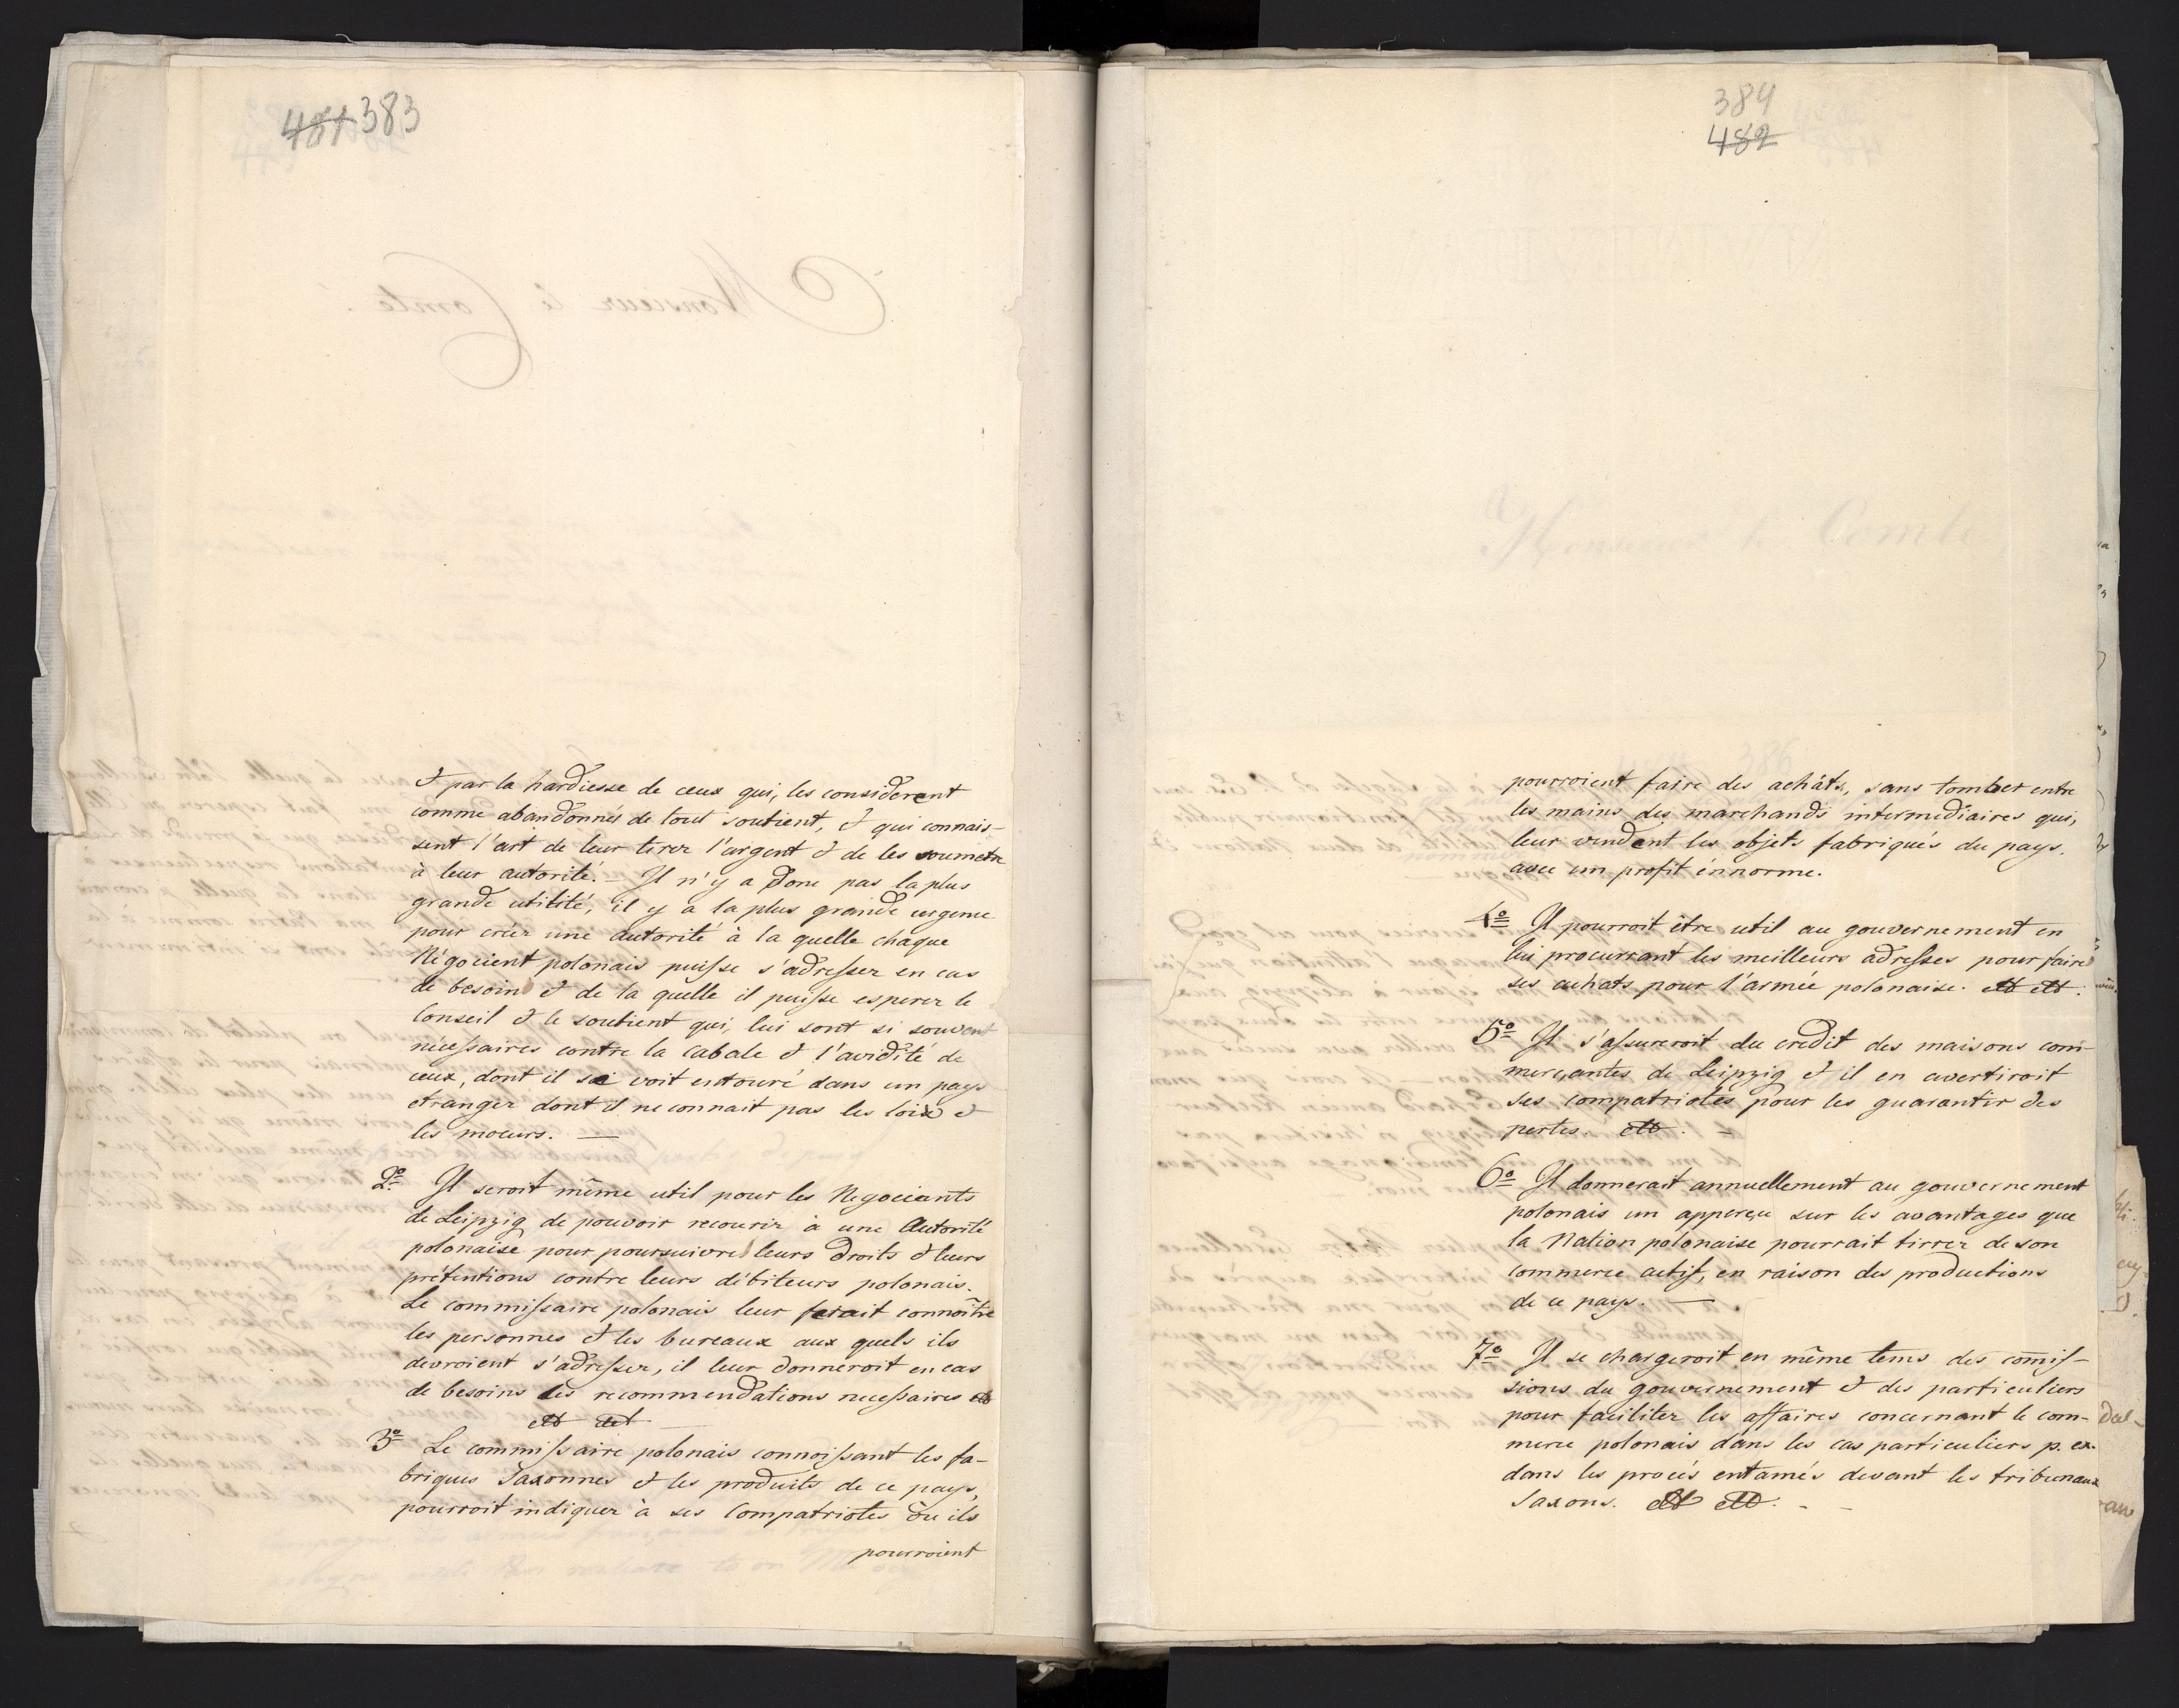 481 383
& par la hardiesse de ceux qui, les considerent
comme abandonnés de tout soutient, & qui connais-
sent l'art de leur tirer l'argent & de les soumetre
à leur autorité. – Il n'y a donc pas la plus
grande utilité, il y a la plus grande urgence
pour créer une autorité à la quelle chaque
Négocient polonais puisse s'adresser en cas
de besoin & de la quelle il puisse esperer le
Conseil & le soutient qui, lui sont si souvent
nécessaires contre la Cabale & l'avidité de
ceux, dont il se voit entouré dans un pays
etranger dont il ne connait pas les loix &
les moeurs. —
2º Il seroit même util pour les Negociants
de Leipzig de pouvoir recourir à une Autorité
polonaise pour poursuivre leurs droits & leurs
prétentions contre leurs débiteurs polonais.
Le commissaire polonais leur ferait connoître
les personnes & les bureaux aux quels ils
devroient s'adresser, il leur donneroit en cas
de besoins les recommendations necessaires
3º Le commissaire polonais connoissant les fa-
briques Saxonnes & les produits de ce pays,
pourroit indiquer à ses Compatriotes où ils
pourroient
384
482
pourroient faire des achâts, sans tomber entre
les mains des marchands intermediaires qui,
leur vendent les objets fabriqués du pays.
avec un profit énnorme.
4º Il pourroit être util au gouvernement en
lui procurrant les meilleurs adresses pour faire
ses achats pour l'armée polonaise.
5º Il s'assureroit du credit des maisons com-
merçantes de Leipzig & il en avertiroit
ses compatriotes pour les guarantir des
pertes. –
6º Il donnerait annuellement au gouvernement
polonais un apperçu sur les avantages que
la Nation polonaise pourrait tirrer de son
commerce actif, en raison des productions
de ce pays. —
7º Il se chargeroit en même tems des comis-
sions du gouvernement & des particuliers
pour faciliter les affaires concernant le com-
merce polonais dans les cas particuliers p. ex.
dans les procés entamés devant les tribunaux
Saxons.